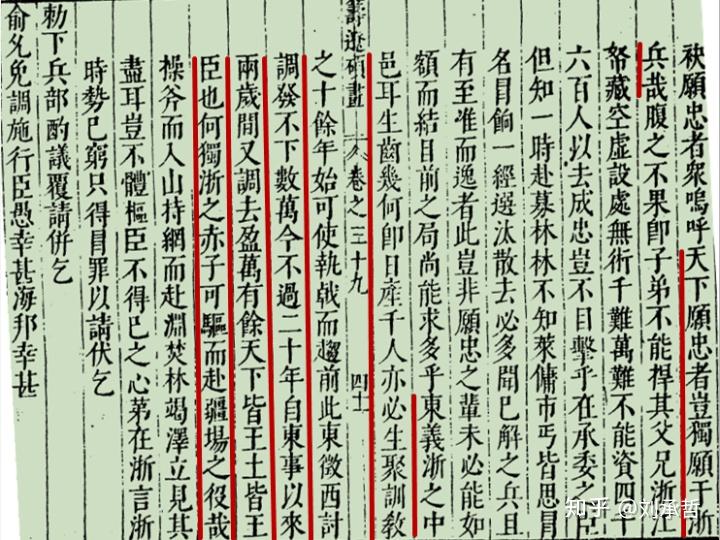 袂願忠者衆嗚呼天下願忠者豈獨願于浙
兵哉腹之不果卽子弟不能捍其父兄浙江
帑藏空虛設處無術千難萬難不能資四千
六百人以去成忠豈不目擊乎在承委之臣
但知一時赴募林林不知菜傭市丐皆思冒
名目餉一經選汰散去必多聞已解之兵且
有至淮而逸者此豈非願忠之輩未必能如
額而結目前之局尚能求多乎東義浙之中
邑耳生齒幾何卽日產千人亦必生聚訓敎
籌遼碩畫 卷之三十九 四十
之十餘年始可使執戟而趨前此東徵西討
調發不下數萬今不過二十年自東事以來
兩歲間又調去盈萬有餘天下皆王土皆王
臣也何獨浙之赤子可驅而赴疆場之役哉
操斧而入山持網而赴淵焚林竭澤立見其
盡耳豈不體樞臣不得已之心第在浙言浙
時勢已窮只得冒罪以請伏乞
勅下兵部酌議覆請併乞
俞允免調施行臣愚幸甚海邦幸甚
知乎 @刘承哲